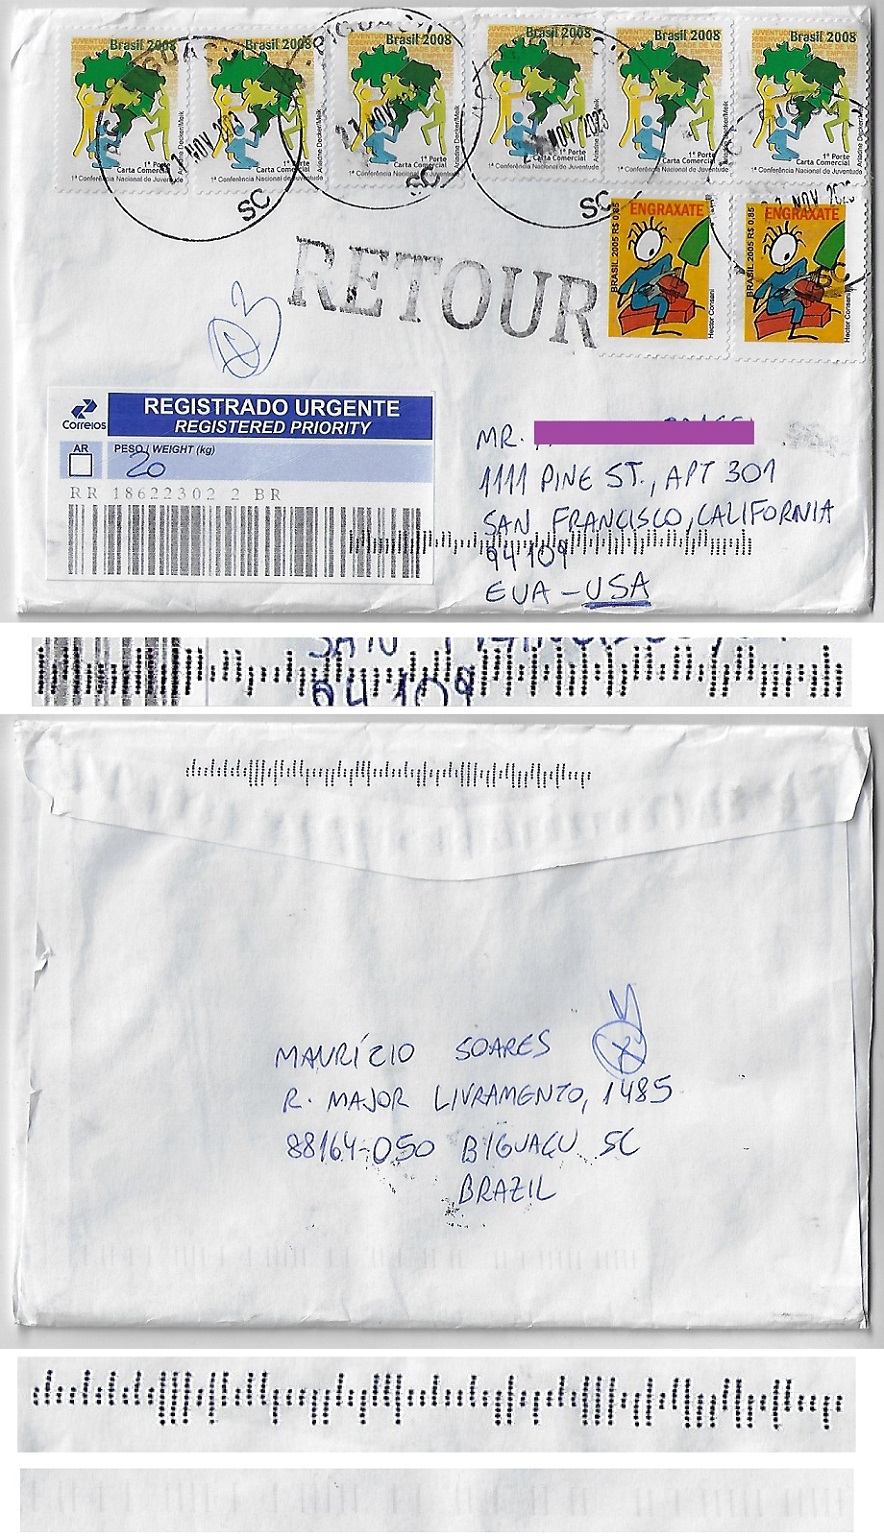 Brasil 2008 Brasil 2008 Brasil 2008 Brasil 2008 Brasil 2008 Brasil 2008
Ariadne Decker/Meik Ariadne Decker/Meik Ariadne Decker/Meik Ariadne Decker/Meik Ariadne Decker/Meik Ariadne Decker/Meik
1º Porte 1º Porte 1º Porte 1º Porte 1º Porte 1º Porte
Carta Comercial Carta Comercial Carta Comercial Carta Comercial Carta Comercial Carta Comercial
1ª Conferência Nacional de Juventude 1ª Conferência Nacional de Juventude 1ª Conferência Nacional de Juventude 1ª Conferência Nacional de Juventude 1ª Conferência Nacional de Juventude 1ª Conferência Nacional de Juventude
NOV 2023
SC SC SC
ENGRAXATE ENGRAXATE
BRASIL 2005 R$ 0,85 BRASIL 2005 R$ 0,85
Hector Consani Hector Consani
RETOUR
Correios
REGISTRADO URGENTE
REGISTERED PRIORITY
AR PESO / WEIGHT (kg)
20
RR 18622302 2 BR
MR.
1111 PINE ST., APT 301
SAN FRANCISCO, CALIFORNIA
94109
EUA - USA
94109
MAURÍCIO SOARES
R. MAJOR LIVRAMENTO, 1485
88164-050 BIGUAÇU SC
BRAZIL